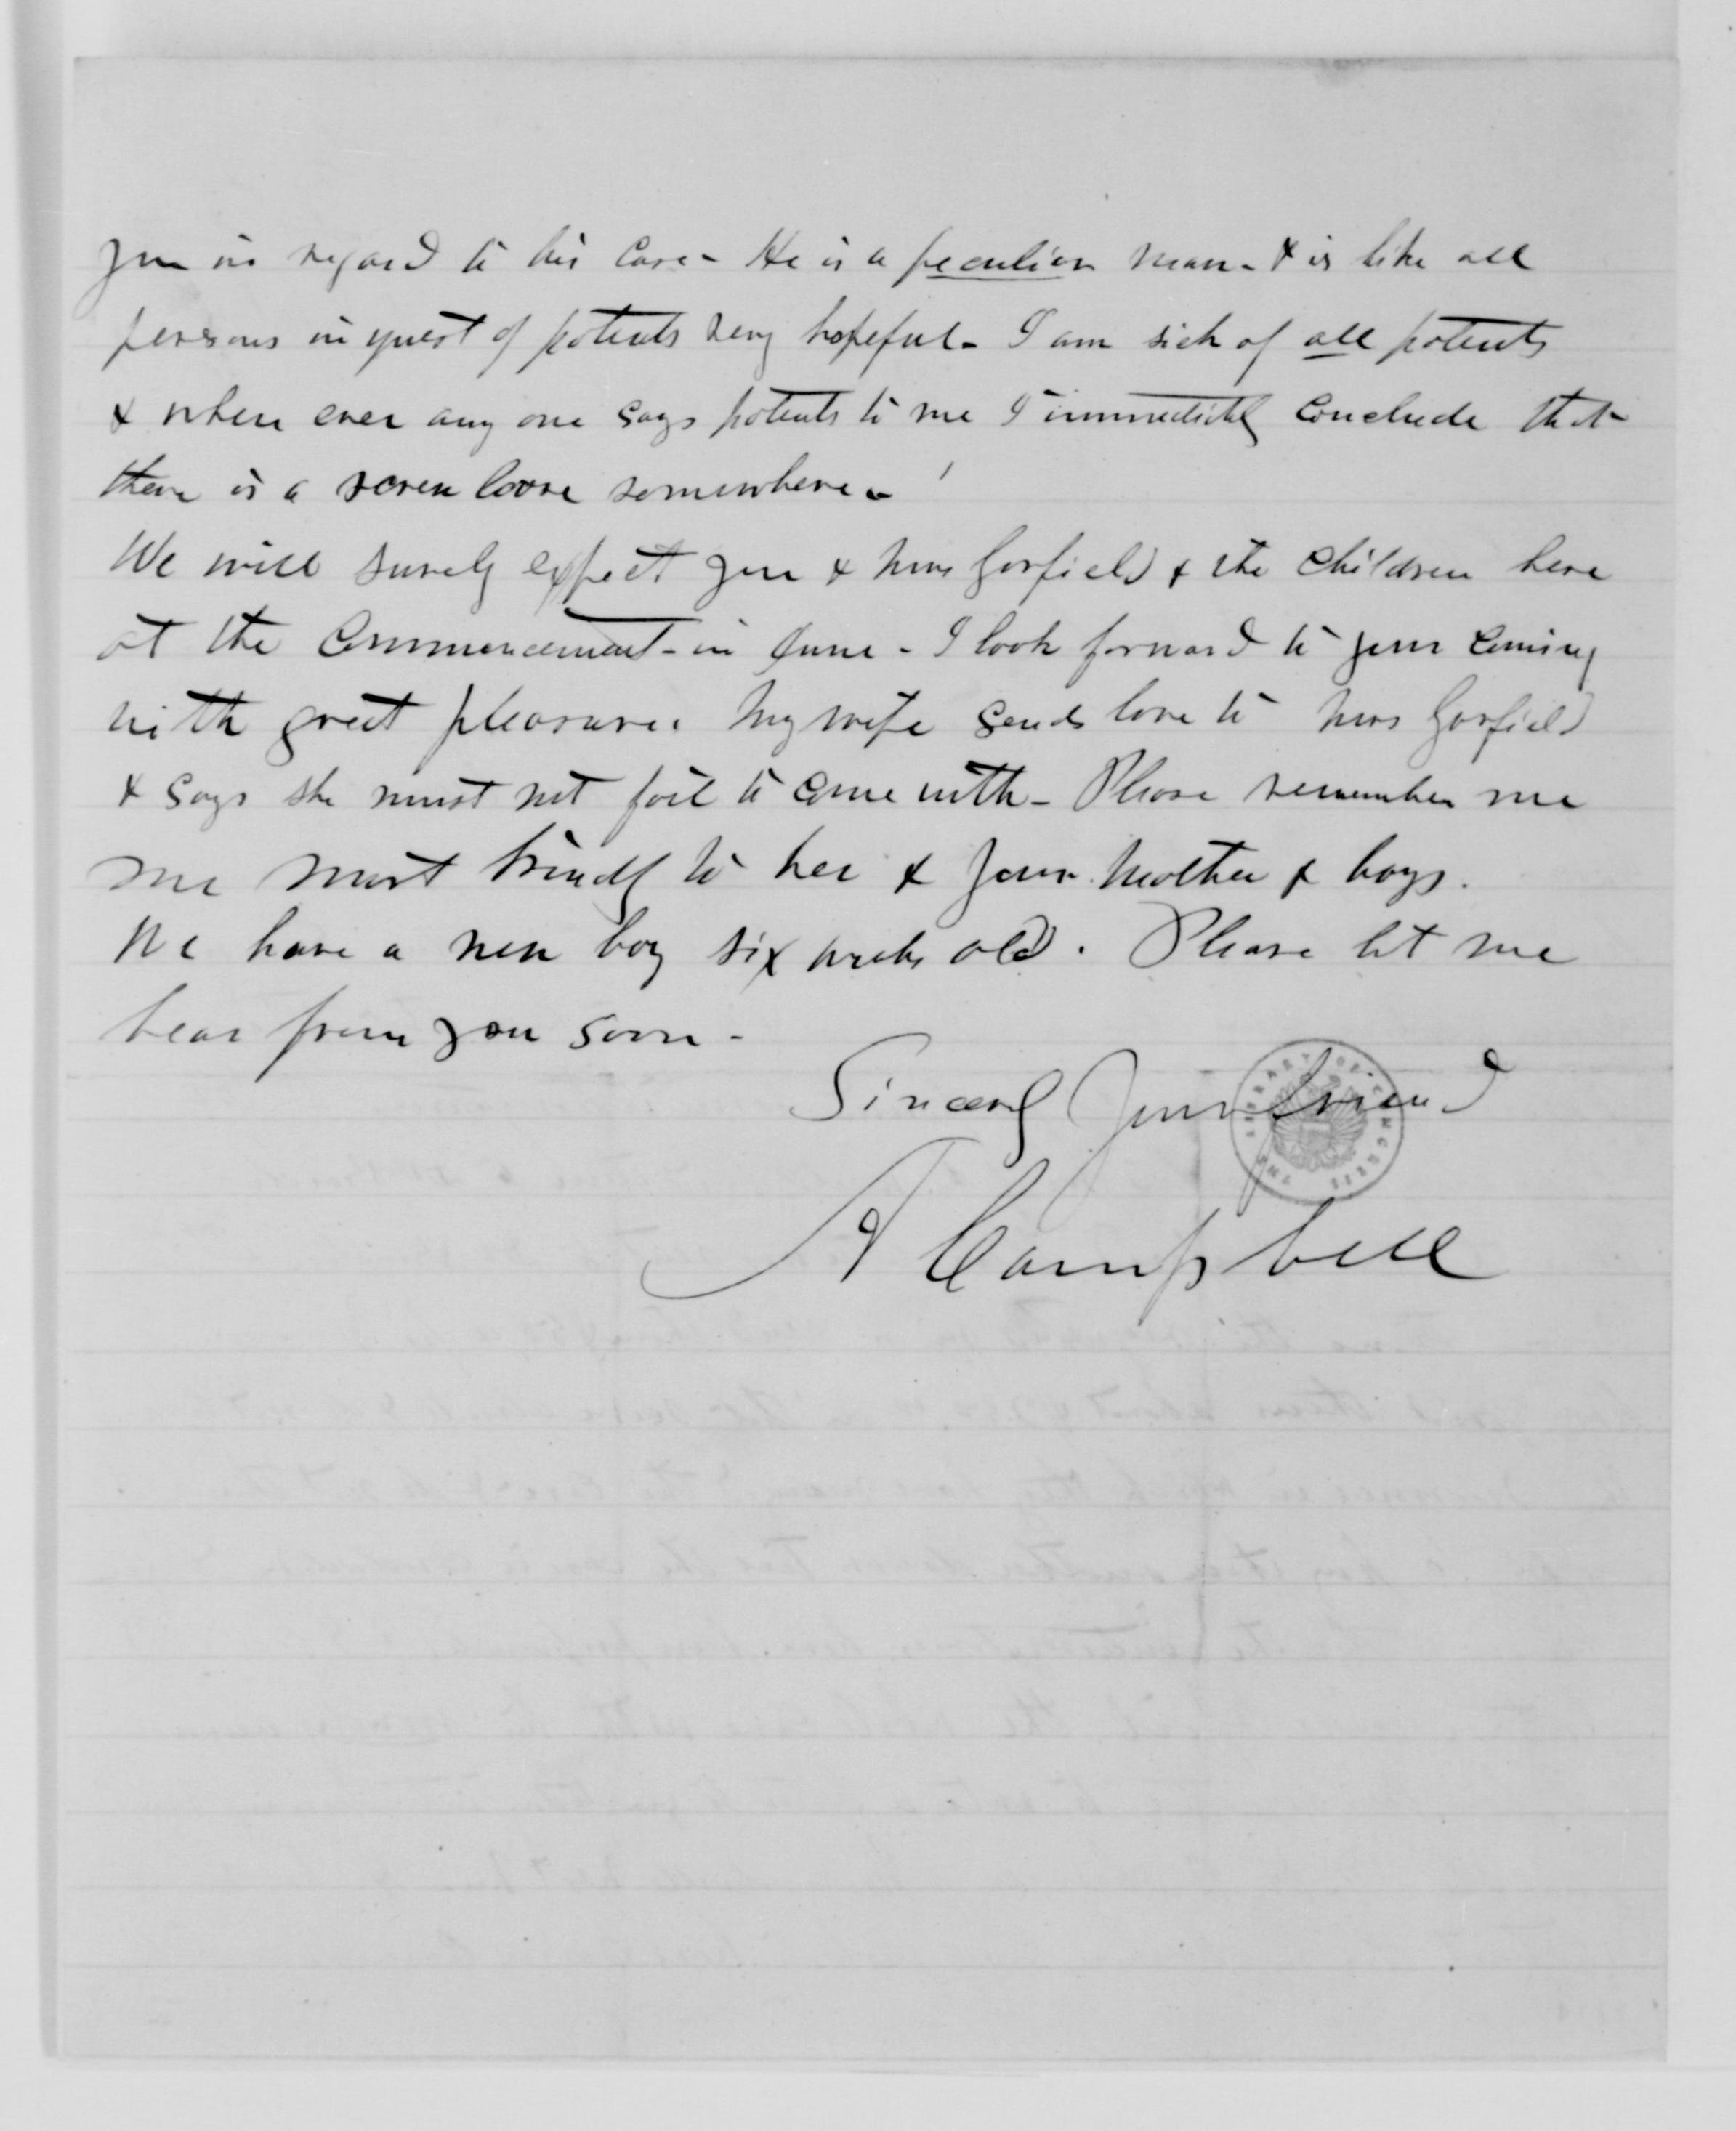 you in regard to his case - He is a peculiar man - & is like all
persons in quest of patents very hopeful - I am sick of all patents
& when ever any one says patents to me I immediately conclude that
there is a screw loose somewhere - !
We will surely expect you & Mrs Garfield & the children here
at the Commencement - in June - I look forward to your coming
with great pleasure. My wife sends love to Mrs Garfield
& says she must not fail to come with - Please remember me
me most kindly to her & your Mother & boys.
We have a new boy six weeks old. Please let me
hear from you soon -
Sincerely Your friend
A Campbell
THE LIBRARY OF CONGRESS